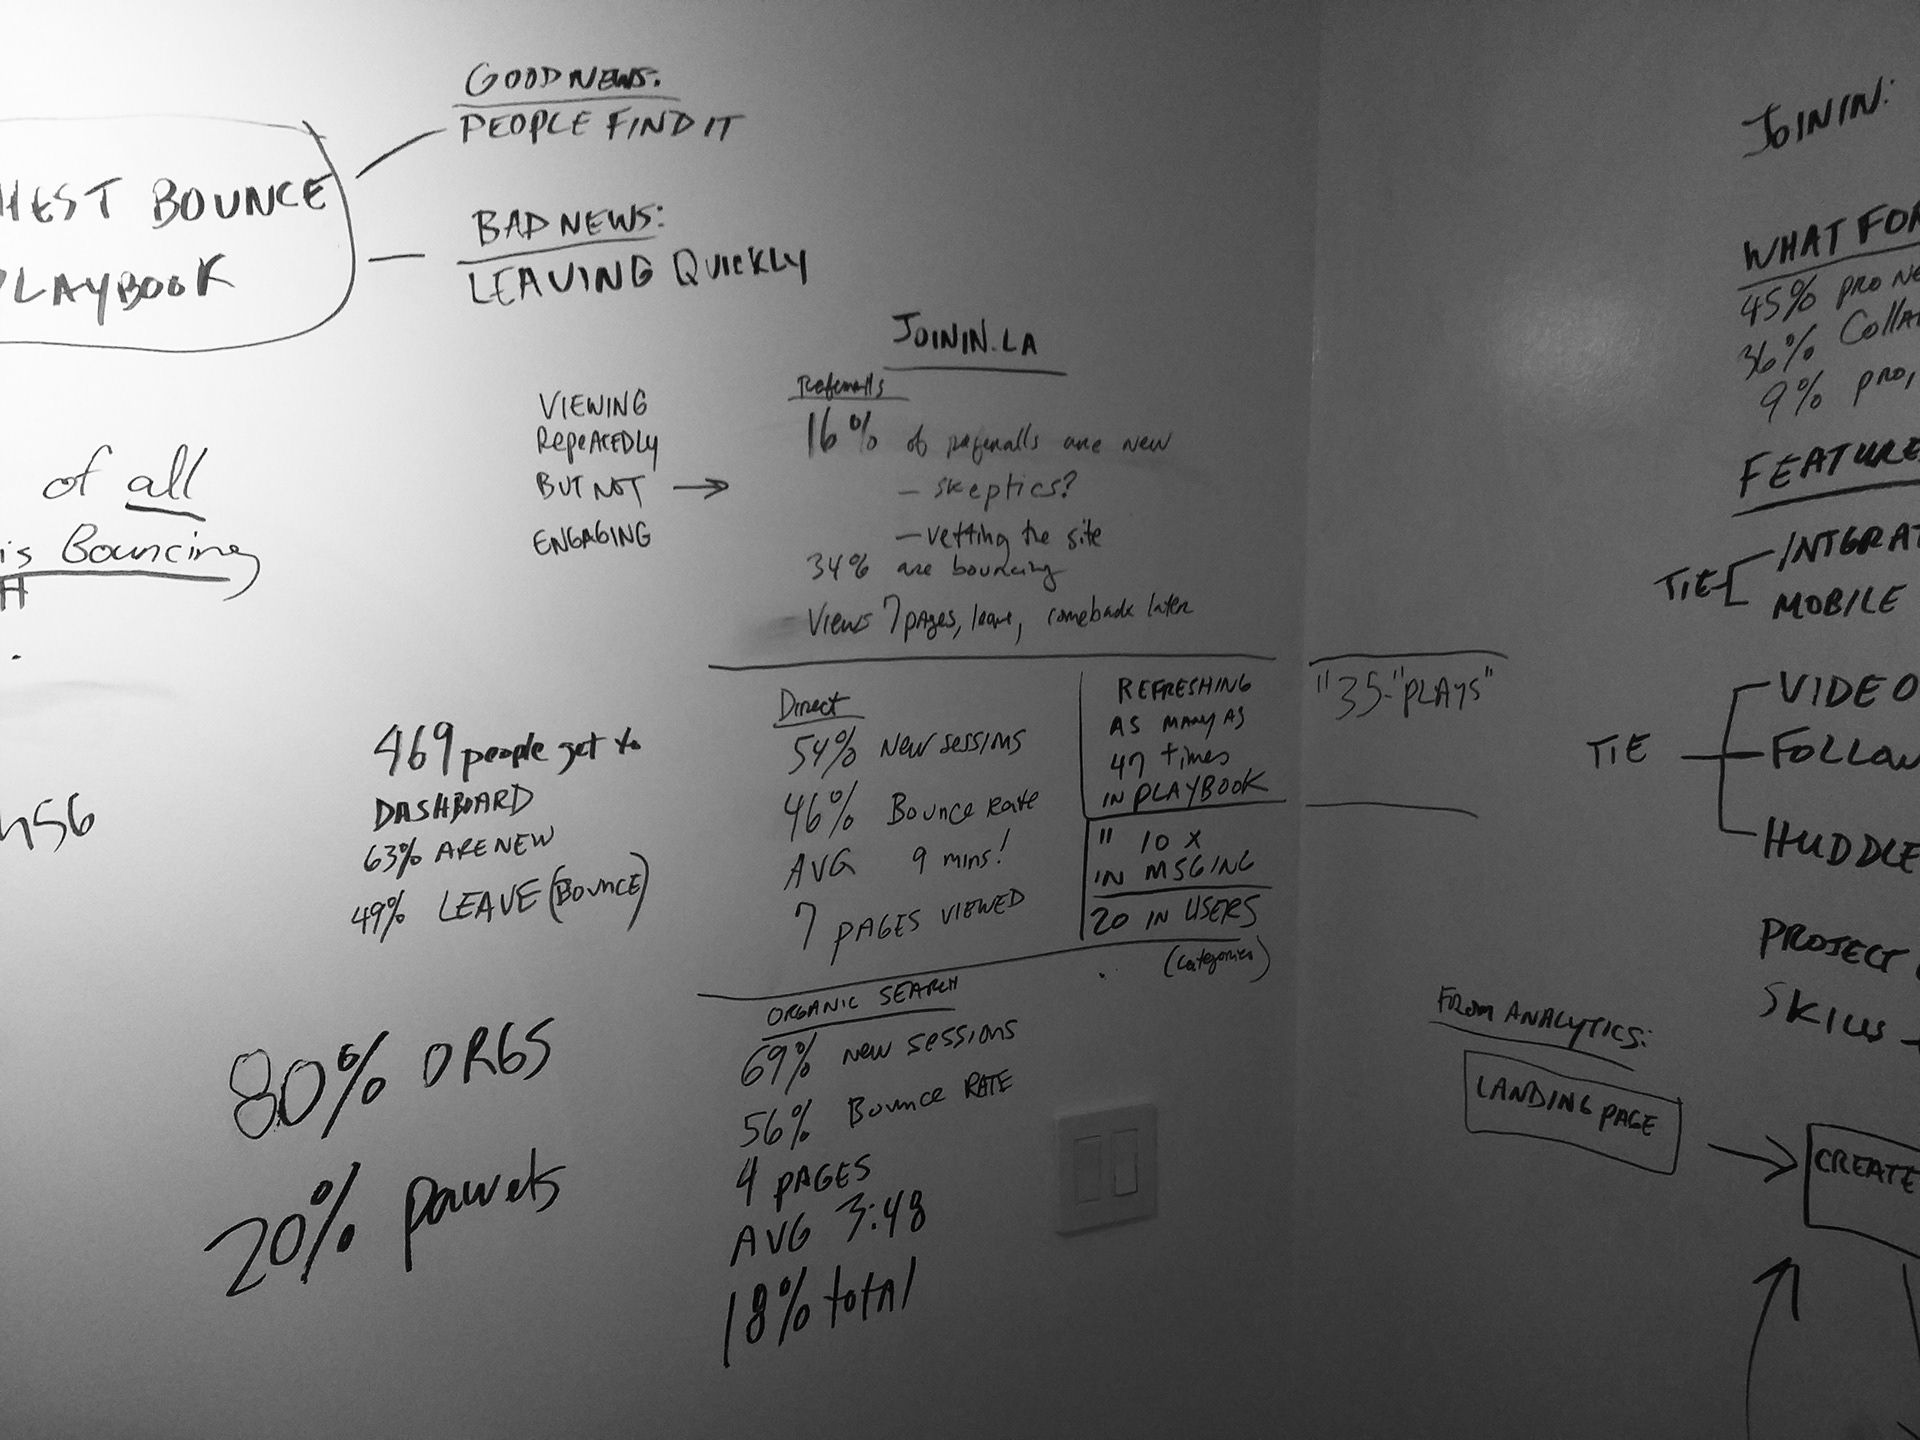 GOOD NEWS:
PEOPLE FIND IT
HEST BOUNCE
PLAYBOOK
BAD NEWS:
LEAVING QUICKLY
of all
is Bouncing
H
456
VIEWING
REPEATEDLY
BUT NOT
ENGAGING
JOININ.LA
Referralls
16% of referalls are new
- skeptics?
- vetting the site
34% are bouncing
Views 7 pages, leave, comeback later
469 people get to
DASHBOARD
63% ARE NEW
49% LEAVE (BOUNCE)
Direct
54% NEW SESSIONS
46% Bounce Rate
AVG 9 mins!
7 PAGES VIEWED
REFRESHING
AS MANY AS
47 times
IN PLAYBOOK
" 10 X
IN MSGING
20 IN USERS
(categories)
"35-"PLAYS"
80% ORGS
20%
ORGANIC SEARCH
69% NEW SESSIONS
56% Bounce RATE
4 PAGES
AVG 3:48
18% total
JOININ:
WHAT FOR
45% PRO NE
36% Colla
9% pro,
FEATURE
TIE
INTGRAT
MOBILE
TIE
VIDEO
FOLLOW
HUDDLE
PROJECT
SKILLS
FROM ANALYTICS:
LANDING PAGE
CREATE